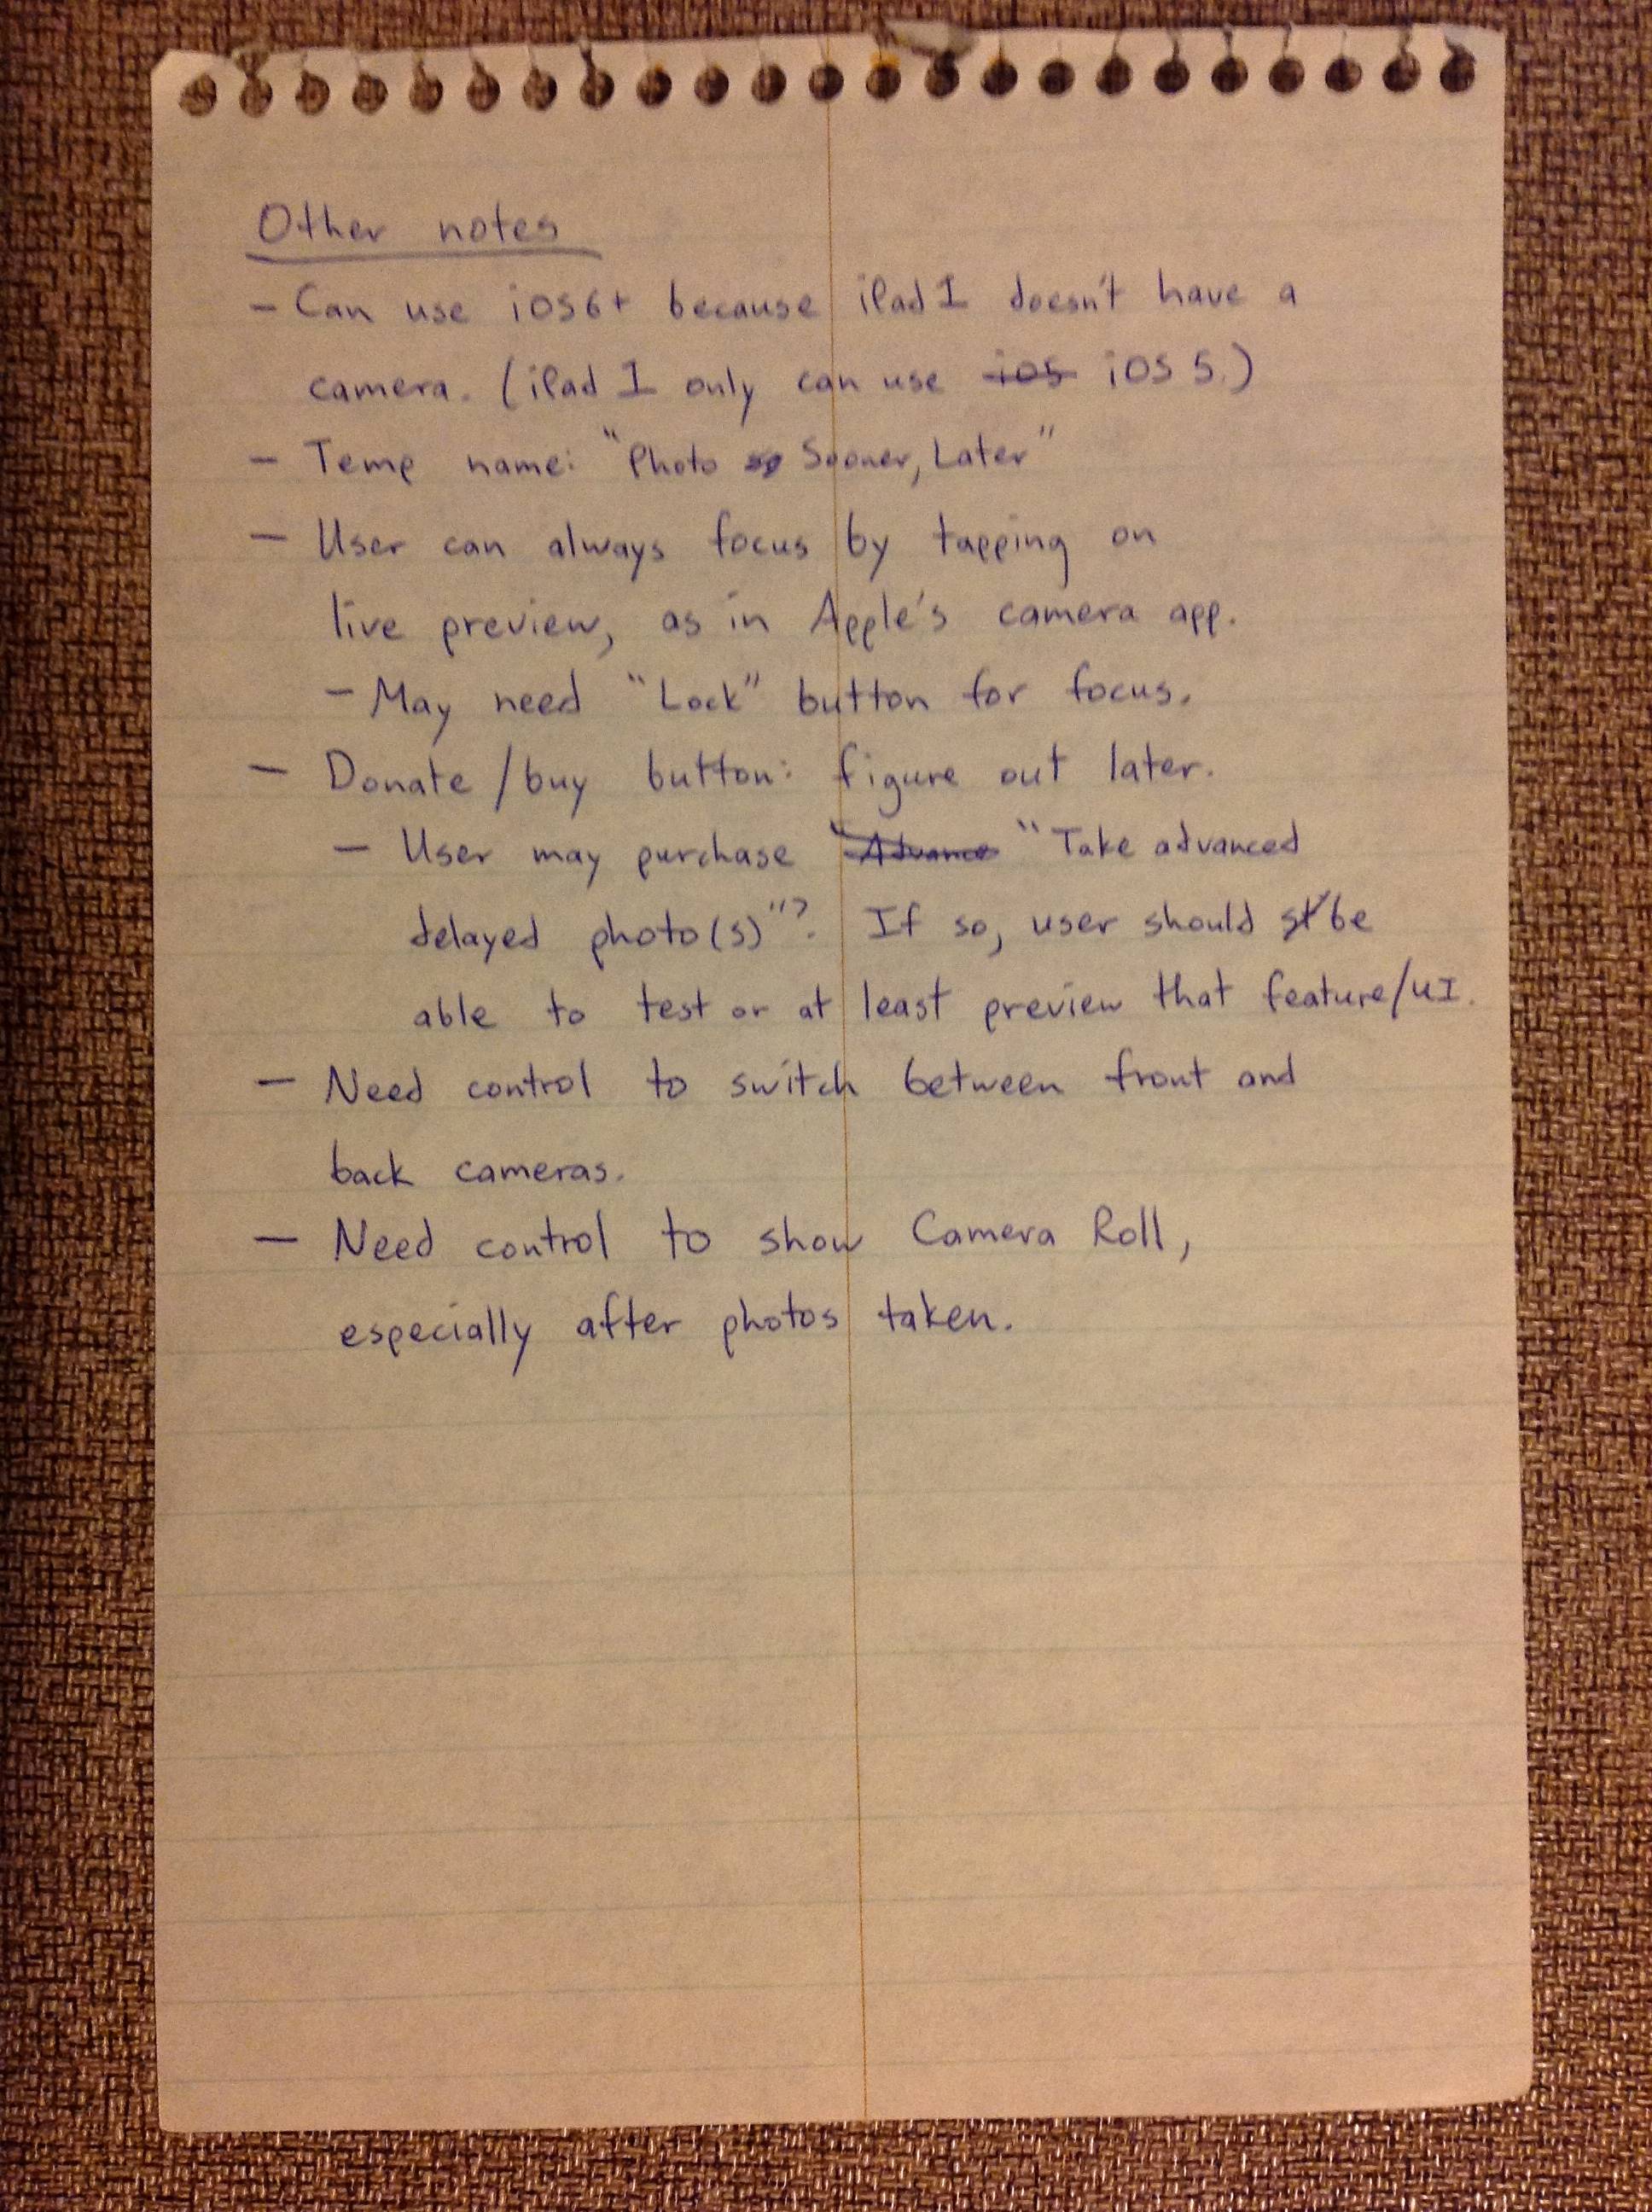 Other notes
- Can use iOS6+ because iPad 1 doesn't have a
camera. (iPad 1 only can use iOS iOS 5.)
- Temp name: "Photo so Sooner, Later"
- User can always focus by tapping on
live preview, as in Apple's camera app.
- May need "Lock" button for focus.
- Donate/buy button: figure out later.
- User may purchase "Advance "Take advanced
delayed photo(s)"? If so, user should st be
able to test or at least preview that feature/UI.
- Need control to switch between front and
back cameras.
- Need control to show Camera Roll,
especially after photos taken.